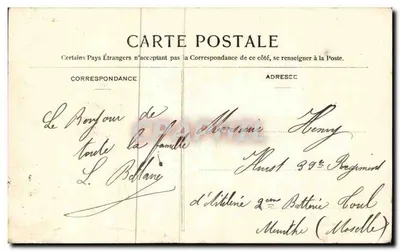 CARTE POSTALE
Certains Pays Étrangers n'acceptant pas la Correspondance de ce côté, se renseigner à la Poste.
CORRESPONDANCE
ADRESSE
Le Bonjour de
toute la famille
L.
Monsieur Henry
39e Regiment
d'Artilerie 2em Batterie Toul
Meurthe (Moselle)